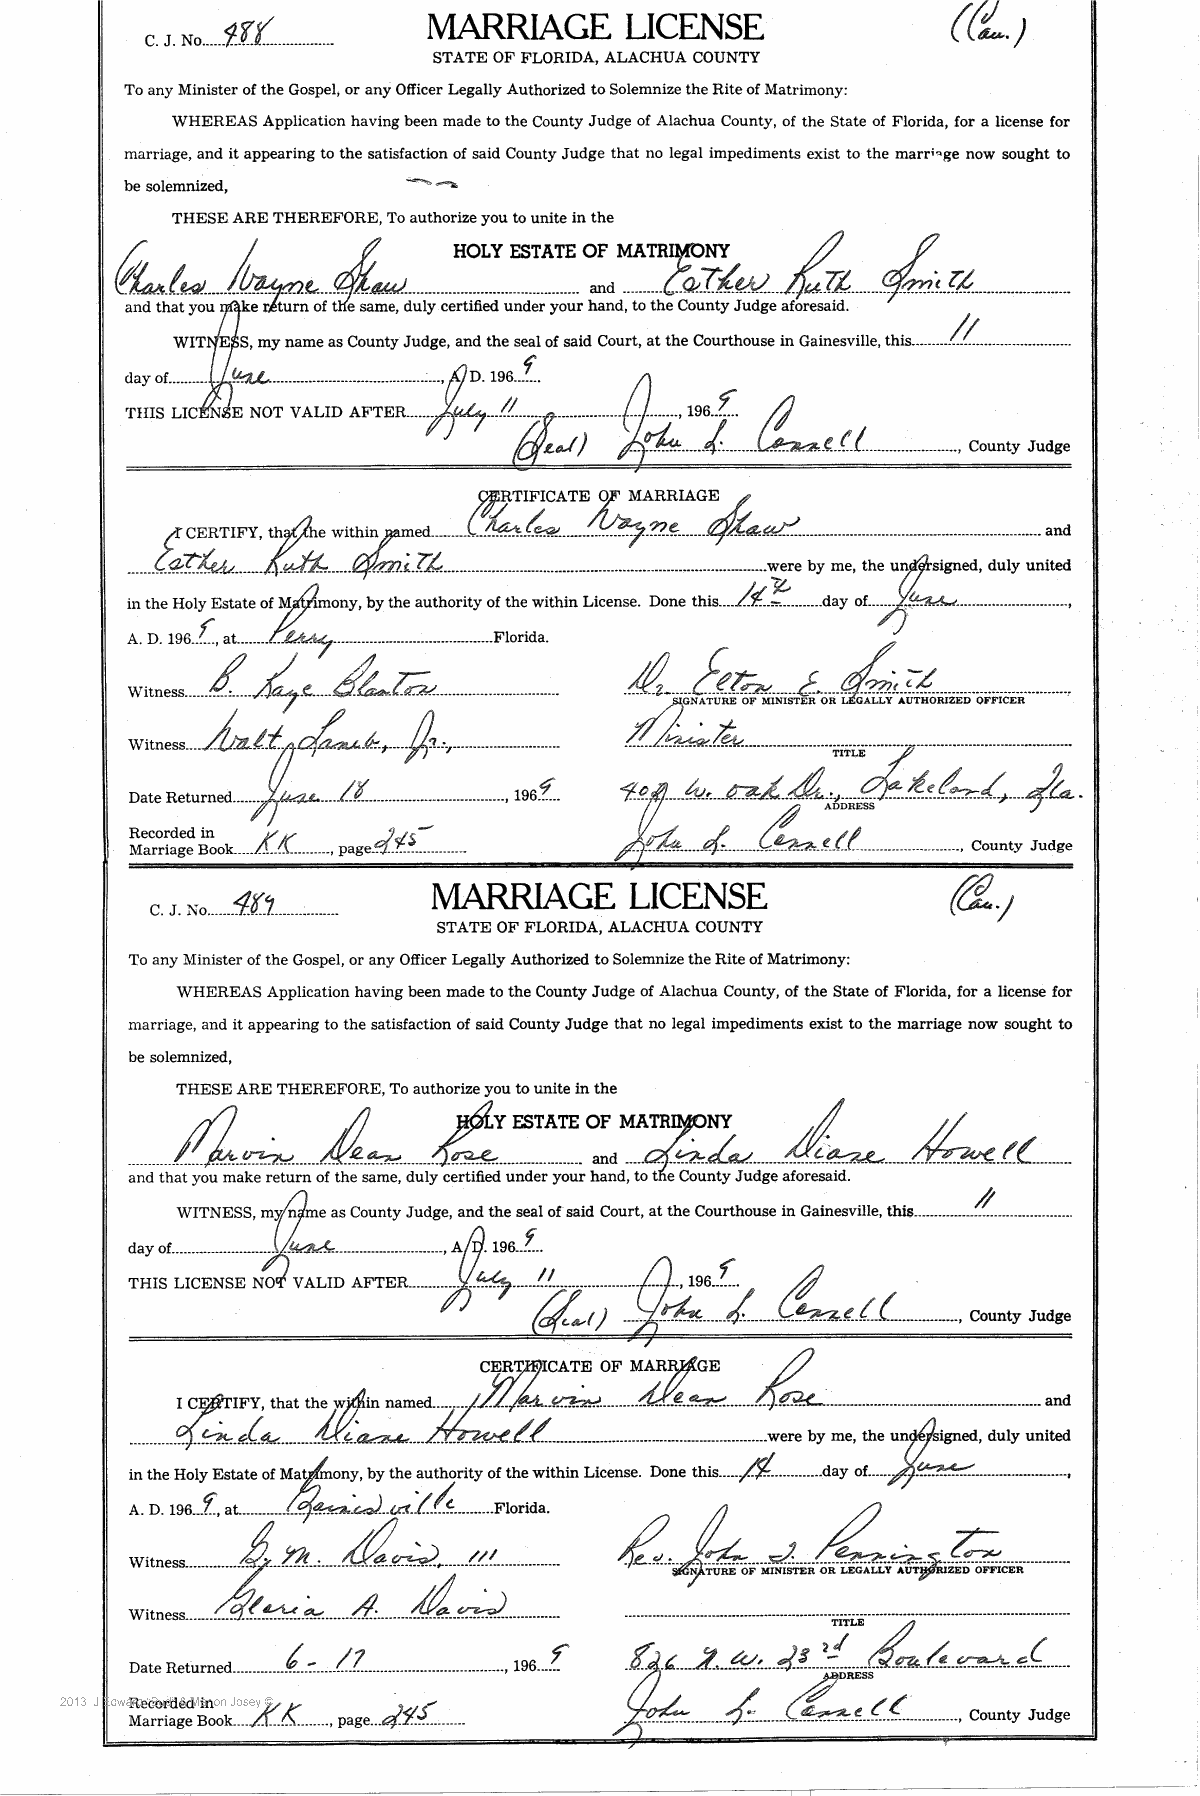 C. J. No. 488 MARRIAGE LICENSE (Cau.)
STATE OF FLORIDA, ALACHUA COUNTY
To any Minister of the Gospel, or any Officer Legally Authorized to Solemnize the Rite of Matrimony:
WHEREAS Application having been made to the County Judge of Alachua County, of the State of Florida, for a license for
marriage, and it appearing to the satisfaction of said County Judge that no legal impediments exist to the marriage now sought to
be solemnized,
THESE ARE THEREFORE, To authorize you to unite in the
HOLY ESTATE OF MATRIMONY
Charles Wayne Shaw and Esther Ruth Smith
and that you make return of the same, duly certified under your hand, to the County Judge aforesaid.
WITNESS, my name as County Judge, and the seal of said Court, at the Courthouse in Gainesville, this 11
day of June, A D. 196 9
THIS LICENSE NOT VALID AFTER July 11, 196 9
(Seal) John L. Connell, County Judge
CERTIFICATE OF MARRIAGE
I CERTIFY, that the within named Charles Wayne Shaw and
Esther Ruth Smith were by me, the undersigned, duly united
in the Holy Estate of Matrimony, by the authority of the within License. Done this 14th day of June,
A. D. 196 9, at Perry Florida.
Witness B. Kaye Blanton Dr. Elton E. Smith
SIGNATURE OF MINISTER OR LEGALLY AUTHORIZED OFFICER
Witness Walt Jr., Minister
TITLE
Date Returned June 18, 196 9 W. Oak Dr., Lakeland, Fla.
ADDRESS
Recorded in
Marriage Book KK, page 245 John L. Connell, County Judge
C. J. No. 489 MARRIAGE LICENSE (Cau.)
STATE OF FLORIDA, ALACHUA COUNTY
To any Minister of the Gospel, or any Officer Legally Authorized to Solemnize the Rite of Matrimony:
WHEREAS Application having been made to the County Judge of Alachua County, of the State of Florida, for a license for
marriage, and it appearing to the satisfaction of said County Judge that no legal impediments exist to the marriage now sought to
be solemnized,
THESE ARE THEREFORE, To authorize you to unite in the
HOLY ESTATE OF MATRIMONY
Marvin Dean Rose and Linda Diane Howell
and that you make return of the same, duly certified under your hand, to the County Judge aforesaid.
WITNESS, my name as County Judge, and the seal of said Court, at the Courthouse in Gainesville, this 11
day of June, A. D. 196 9
THIS LICENSE NOT VALID AFTER July 11, 196 9
(Seal) John L. Connell, County Judge
CERTIFICATE OF MARRIAGE
I CERTIFY, that the within named Marvin Dean Rose and
Linda Diane Howell were by me, the undersigned, duly united
in the Holy Estate of Matrimony, by the authority of the within License. Done this 14 day of June,
A. D. 196 9, at Gainesville Florida.
Witness G. M. Davis, III Rev. John J. Pennington
SIGNATURE OF MINISTER OR LEGALLY AUTHORIZED OFFICER
Witness Gloria A. Davis
TITLE
Date Returned 6-17, 196 9 826 N. W. 23rd Boulevard
ADDRESS
2013 Josey ©
Recorded in
Marriage Book KK, page 245 John L. Connell, County Judge